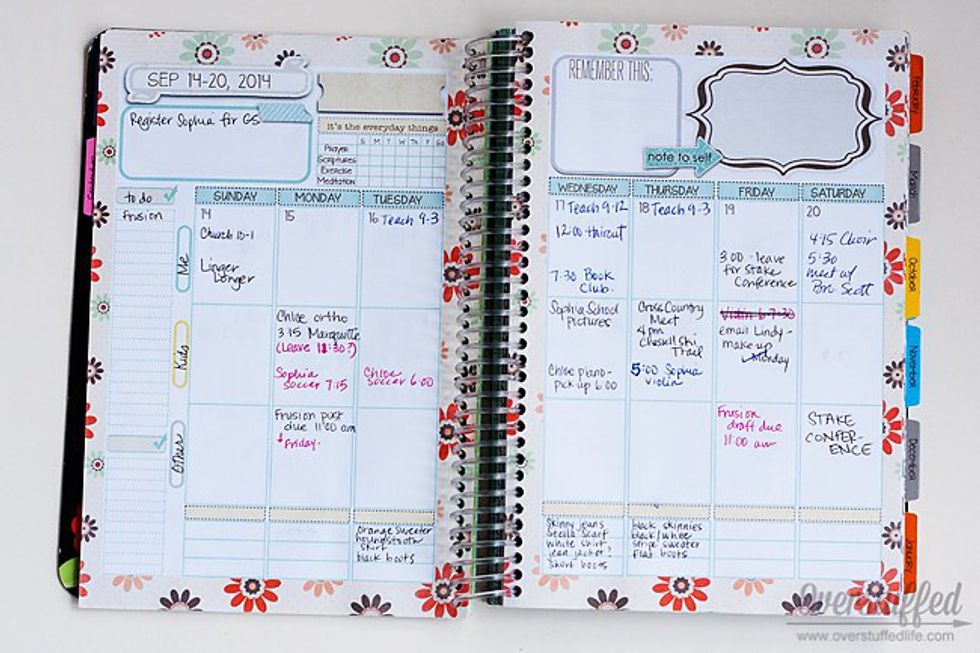 SEP 14-20, 2014
Register Sophia for GS
it's the everyday things
S M T W T F Sa
Prayer
Scriptures
Exercise
Meditation
to do
frusion
Me
Kids
Other
SUNDAY
14
Church 10-1
Linger
Longer
MONDAY
15
Chloe ortho
3:15 Marquette
(Leave
Sophia
soccer 7:15
Frusion post
due 11:00 am
↓ Friday.
TUESDAY
16 Teach 9-3
Chloe
Soccer 6:00
Orange sweater
houndstooth
shirt
black boots
REMEMBER THIS:
note to self
WEDNESDAY
17 Teach 9-12
12:00 Haircut
7:30 Book
Club.
Sophia School
pictures
Chloe piano-
pick up 6:00
Skinny jeans
Steala Scarf
white shirt
jean jacket?
Short boots
THURSDAY
18 Teach 9-3
Cross Country
Meet
4 pm
Ski
Trail
5:00 Sophia
violin
black skinnies
black/white
stripe sweater
flat boots
FRIDAY
19
3:00 - leave
for Stake
Conference
Violin 6-7:30
email Lindy-
make up
Monday
Frusion
draft due
11:00 am
SATURDAY
20
4:15 Choir
5:30
meet w/
Bro. Scott
STAKE
CONFER-
ENCE
February
March
October
November
December
January
Overstuffed
www.overstuffedlife.com